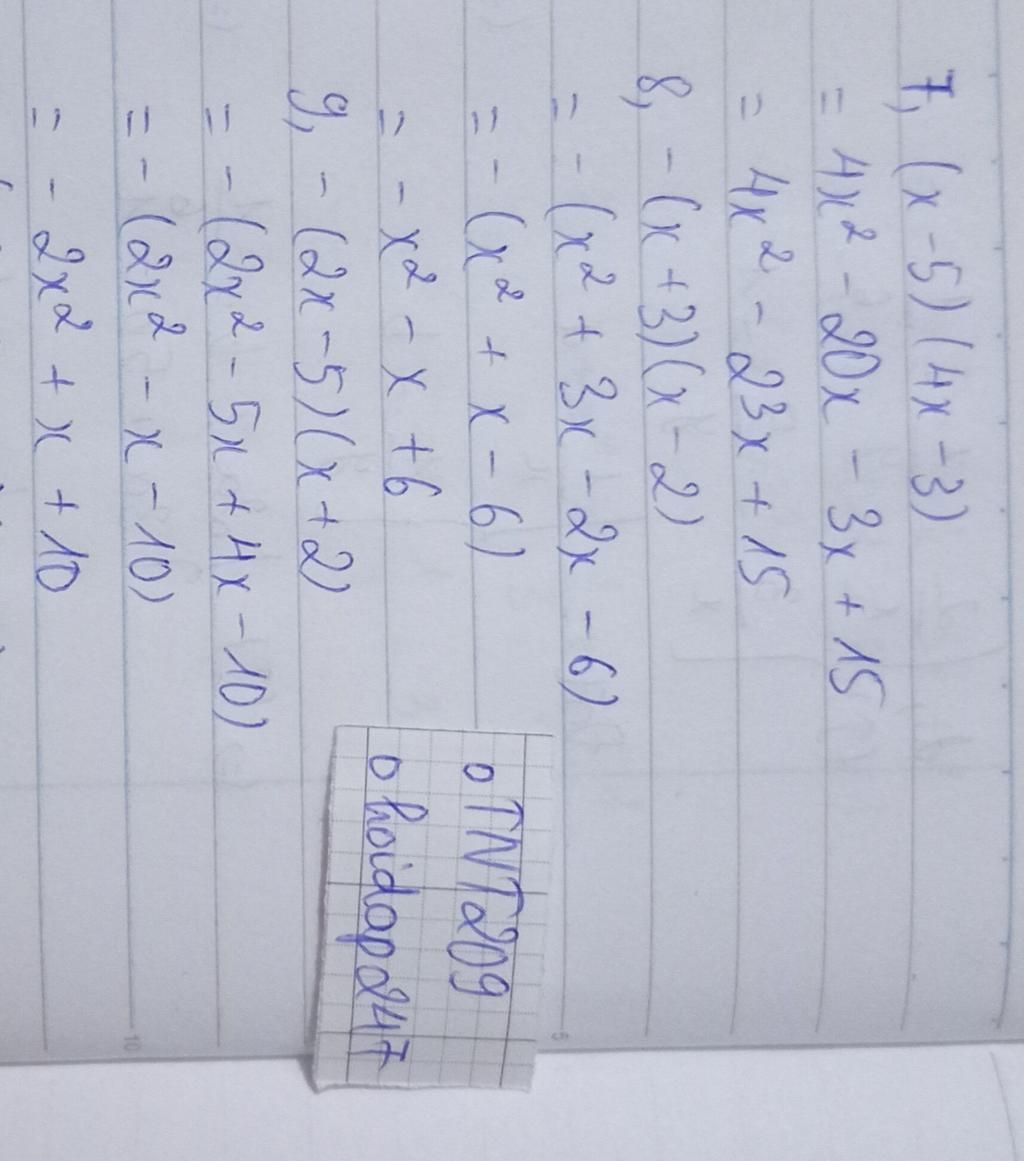 7, (x - 5) (4x - 3)
= 4x² - 20x - 3x + 15
= 4x² - 23x + 15
8, - (x + 3)(x - 2)
= - (x² + 3x - 2x - 6)
= - (x² + x - 6)
= - x² - x + 6
9, - (2x - 5)(x + 2)
= - (2x² - 5x + 4x - 10)
= - (2x² - x - 10)
= - 2x² + x + 10
o TNT209
o hoidap247
5
10